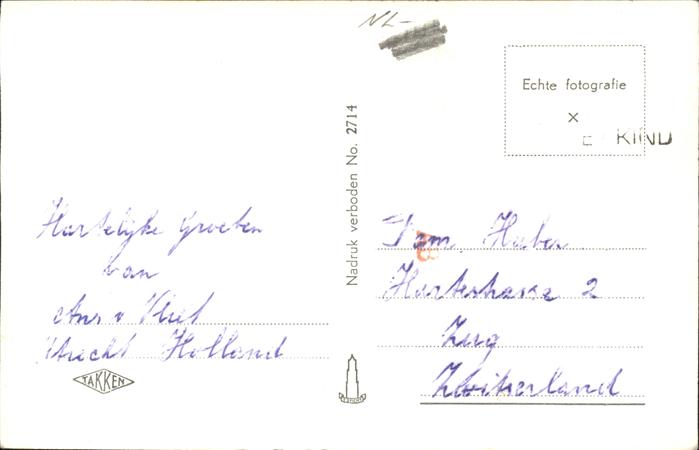 NL-
Echte fotografie
x
KIND
Nadruk verboden No. 2714
Hartelijke groeten
van
Ans v Vliet
Utrecht Holland
TAKKEN
Fam. Huber
2
Zug
Zwitserland